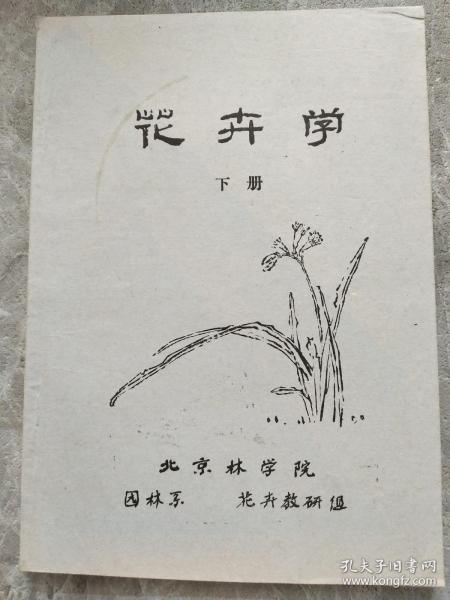 花卉学
下册
北京林学院
园林系 花卉教研组
孔夫子旧书网
www.kongfz.com